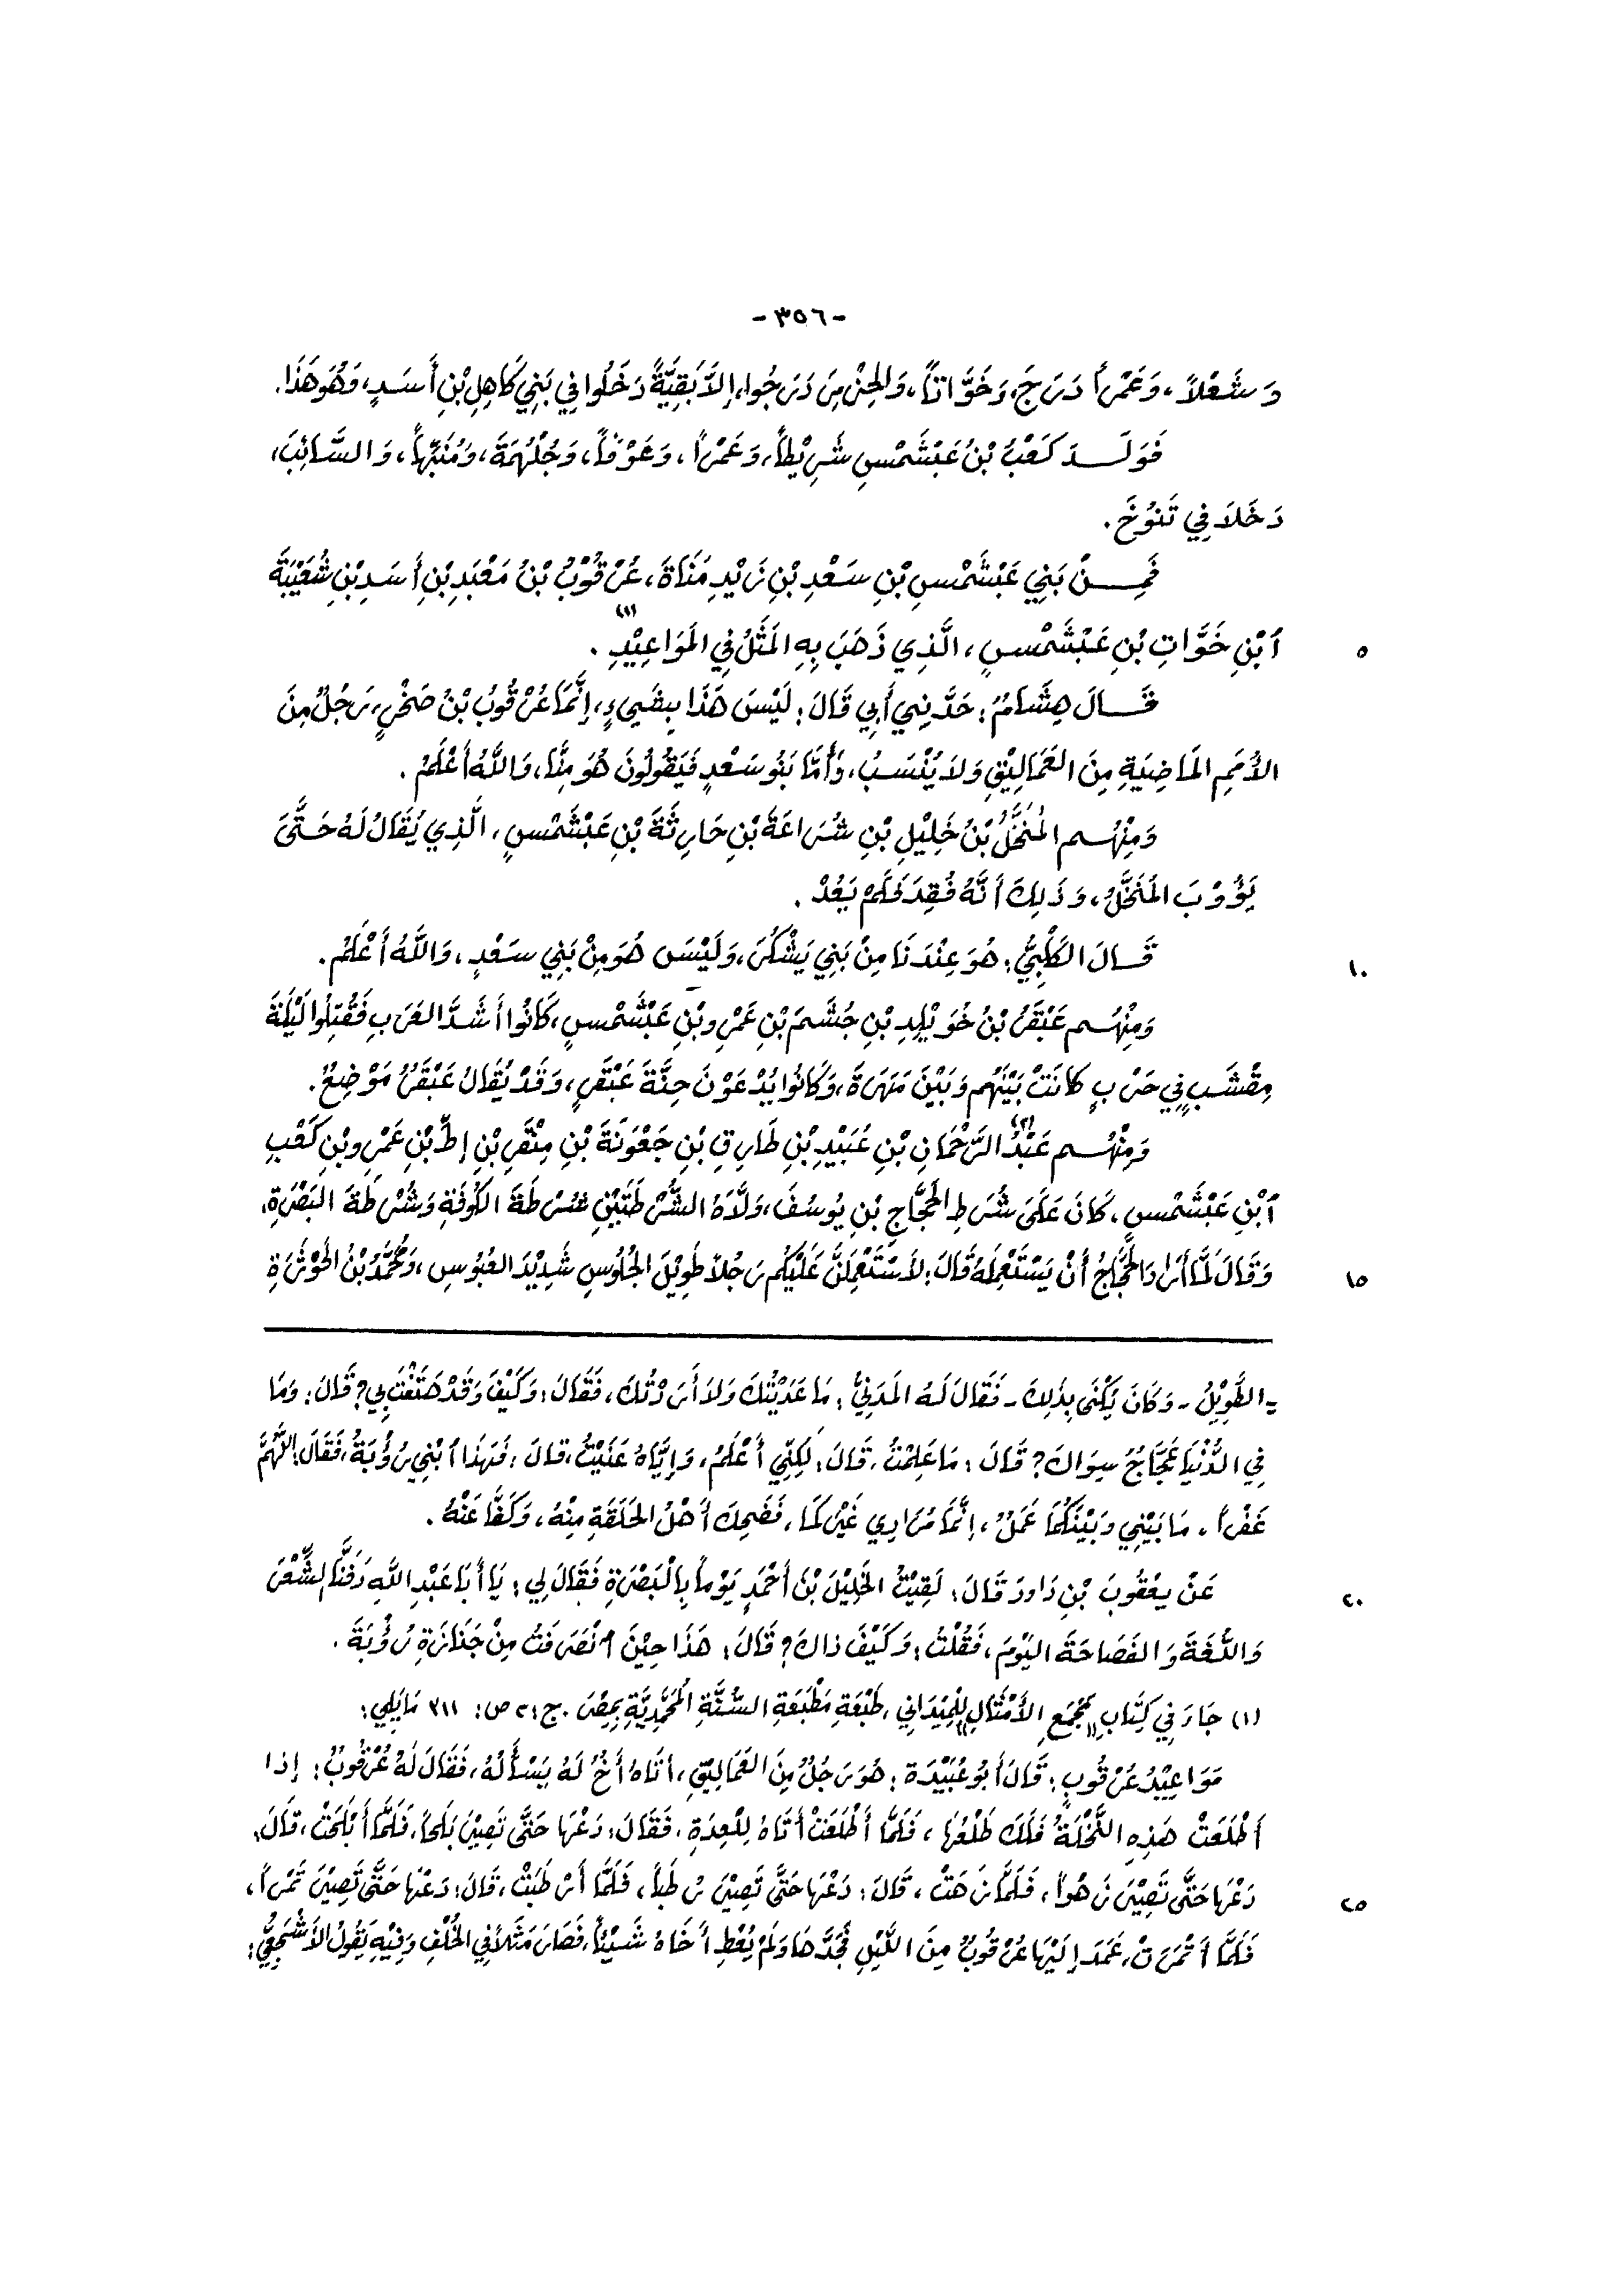 -٣٥٦-
وَشَعْلاً، وَعَمْراً دَرَجَ، وَخَوَّاتاً، وَالحِرْمِنَ دَرَجُوا، إِلاَّ بَقِيَّةً دَخَلُوا فِي بَنِي كَاهِلِ بْنِ أَسَدٍ، وَهُوَ هَذَا.
فَوَلَـدَ كَعْبُ بْنُ عَبْشَمْسِ شَرِيْطاً، وَعَمْراً، وَعَوْفاً، وَجُلْهُمَةَ، وَمُنَبِّهاً، وَالسَّائِبَ،
دَخَلَا فِي تَنُوْخَ.
فَمِـنْ بَنِي عَبْشَمْسِ بْنِ سَعْدِ بْنِ زَيْدِ مَنَاةَ، عُرْقُوْبُ بْنُ مَعْبَدِ بْنِ أَسَدِ بْنِ شُعَيْبَةَ
٥ ٱبْنِ خَوَّاتِ بْنِ عَبْشَمْسٍ، الَّذِي ذَهَبَ بِهِ المَثَلُ فِي المَوَاعِيْدِ (١).
قَـالَ هِشَامٌ: حَدَّثَنِي أَبِي قَالَ: لَيْسَ هَذَا بِشَيءٍ، إِنَّمَا عُرْقُوبُ بْنُ صَخْرٍ، رَجُلٌ مِنَ
الأُمَمِ المَاضِيَةِ مِنَ العَمَالِيْقِ وَلاَ يُنْسَبُ، وَأَمَّا بَنُو سَعْدٍ فَيَقُولُونَ هُوَ مِنَّا، وَاللَّهُ أَعْلَمُ.
وَمِنْهُـم المُنَخَّلُ بْنُ خَلِيْلِ بْنِ شُرَاعَةَ بْنِ حَارِثَةَ بْنِ عَبْشَمْسٍ، الَّذِي يُقَالُ لَهُ حَتَّى
يَؤُوْبَ المُنَخَّلُ، وَذَلِكَ أَنَّهُ فُقِدَ فَلَمْ يَعُدْ.
١٠ قَـالَ الكَلْبِيُّ: هُوَ عِنْدَنَا مِنْ بَنِي يَشْكُرَ، وَلَيْسَ هُوَ مِنْ بَنِي سَعْدٍ، وَاللَّهُ أَعْلَمُ.
وَمِنْهُـم عَبْقَرُ بْنُ خُوَيْلِدِ بْنِ جُشَمَ بْنِ عَمْرِو بْنِ عَبْشَمْسٍ، كَانُوا أَشَدَّ العَرَبِ فَقُتِلُوا لَيْلَةَ
مِقْشَبٍ فِي حَرْبٍ كَانَتْ بَيْنَهُم وَبَيْنَ مَهَرَةَ، وَكَانُوا يُدْعَوْنَ جِنَّةَ عَبْقَرٍ، وَقَدْ يُقَالُ عَبْقَرُ مَوْضِعٌ.
وَمِنْهُـم عَبْدُ (٢) الرَّحْمَانِ بْنِ عُبَيْدِ بْنِ طَارِقِ بْنِ جَعْوَنَةَ بْنِ مِنْقَرِ بْنِ إِطِّ بْنِ عَمْرِو بْنِ كَعْبِ
ٱبْنِ عَبْشَمْسٍ، كَانَ عَلَى شُرَطِ الحَجَّاجِ بْنِ يُوسُفَ، وَلَّاهُ الشُّرْطَتَيْنِ شُرْطَةَ الكُوفَةِ وَشُرْطَةَ البَصْرَةِ،
١٥ وَقَالَ لَمَّا أَرَادَ الحَجَّاجُ أَنْ يَسْتَعْمِلَهُ قَالَ: لأَسْتَعْمِلَنَّ عَلَيْكُم رَجُلاً طَوِيْلَ الجُلُوسِ شَدِيْدَ العُبُوسِ، وَمُحَمَّدُ بْنُ الحَوْثَرَةِ
= الطَّوِيْلُ - وَكَانَ يُكْنَى بِذَلِكَ - فَقَالَ لَهُ المَدَنِيُّ: مَا عَدَيْتُكَ وَلاَ أَرَدْتُكَ، فَقَالَ: وَكَيْفَ وَقَدْ هَتَفْتَ بِي؟ قَالَ: وَمَا
فِي الدُّنْيَا عَجَّاجٌ سِوَاكَ؟ قَالَ: مَا عَلِمْتُ. قَالَ: لَكِنِّي أَعْلَمُ، وَإِيَّاهُ عَنَيْتُ، قَالَ: فَهَذَا ٱبْنِي رُؤْبَةُ، فَقَالَ: اللَّهُمَّ
غَفْراً، مَا بَيْنِي وَبَيْنَكُمَا عَمَلٌ، إِنَّمَا مُرَادِي غَيْرُكُمَا، فَضَحِكَ أَهْلُ الحَلَقَةِ مِنْهُ، وَكَفَّا عَنْهُ.
٢٠ عَنْ يَعْقُوبَ بْنِ دَاودَ قَالَ: لَقِيْتُ الخَلِيْلَ بْنَ أَحْمَدٍ يَوْماً بِالْبَصْرَةِ فَقَالَ لِي: يَا أَبَا عَبْدِ اللَّهِ دَفَنَّا الشِّعْرَ
وَاللُّغَةَ وَالفَصَاحَةَ اليَوْمَ، فَقُلْتُ: وَكَيْفَ ذَاكَ؟ قَالَ: هَذَا حِيْنَ ٱنْصَرَفْتُ مِنْ جَنَازَةِ رُؤْبَةَ.
(١) جَاءَ فِي كِتَابِ «مَجْمَعِ الأَمْثَالِ لِلْمِيْدَانِي» طَبْعَةِ مَطْبَعَةِ السُّنَّةِ المُحَمَّدِيَّةِ بِمِصْرَ. ج: ٢ ص: ٣١١ مَا يَلِي:
مَوَاعِيْدُ عُرْقُوبٍ: قَالَ أَبُو عُبَيْدَة: هُوَ رَجُلٌ مِنَ العَمَالِيْقِ، أَتَاهُ أَخٌ لَهُ يَسْأَلُهُ، فَقَالَ لَهُ عُرْقُوبٌ: إِذَا
أَطْلَعَتْ هَذِهِ النَّخْلَةُ فَلَكَ طَلْعُهَا، فَلَمَّا أَطْلَعَتْ أَتَاهُ لِلْعِدَةِ، فَقَالَ: دَعْهَا حَتَّى تَصِيْرَ بَلَحاً، فَلَمَّا أَبْلَحَتْ، قَالَ:
٢٥ دَعْهَا حَتَّى تَصِيْرَ زَهْواً، فَلَمَّا زَهَتْ، قَالَ: دَعْهَا حَتَّى تَصِيْرَ رُطَباً، فَلَمَّا أَرْطَبَتْ، قَالَ: دَعْهَا حَتَّى تَصِيْرَ تَمْراً،
فَلَمَّا أَتْمَرَتْ، عَمَدَ إِلَيْهَا عُرْقُوبٌ مِنَ اللَّيْلِ فَجَدَّهَا وَلَمْ يُعْطِ أَخَاهُ شَيْئاً، فَصَارَ مَثَلاً فِي الخُلْفِ وَفِيْهِ يَقُولُ الأَشْجَعِيُّ: